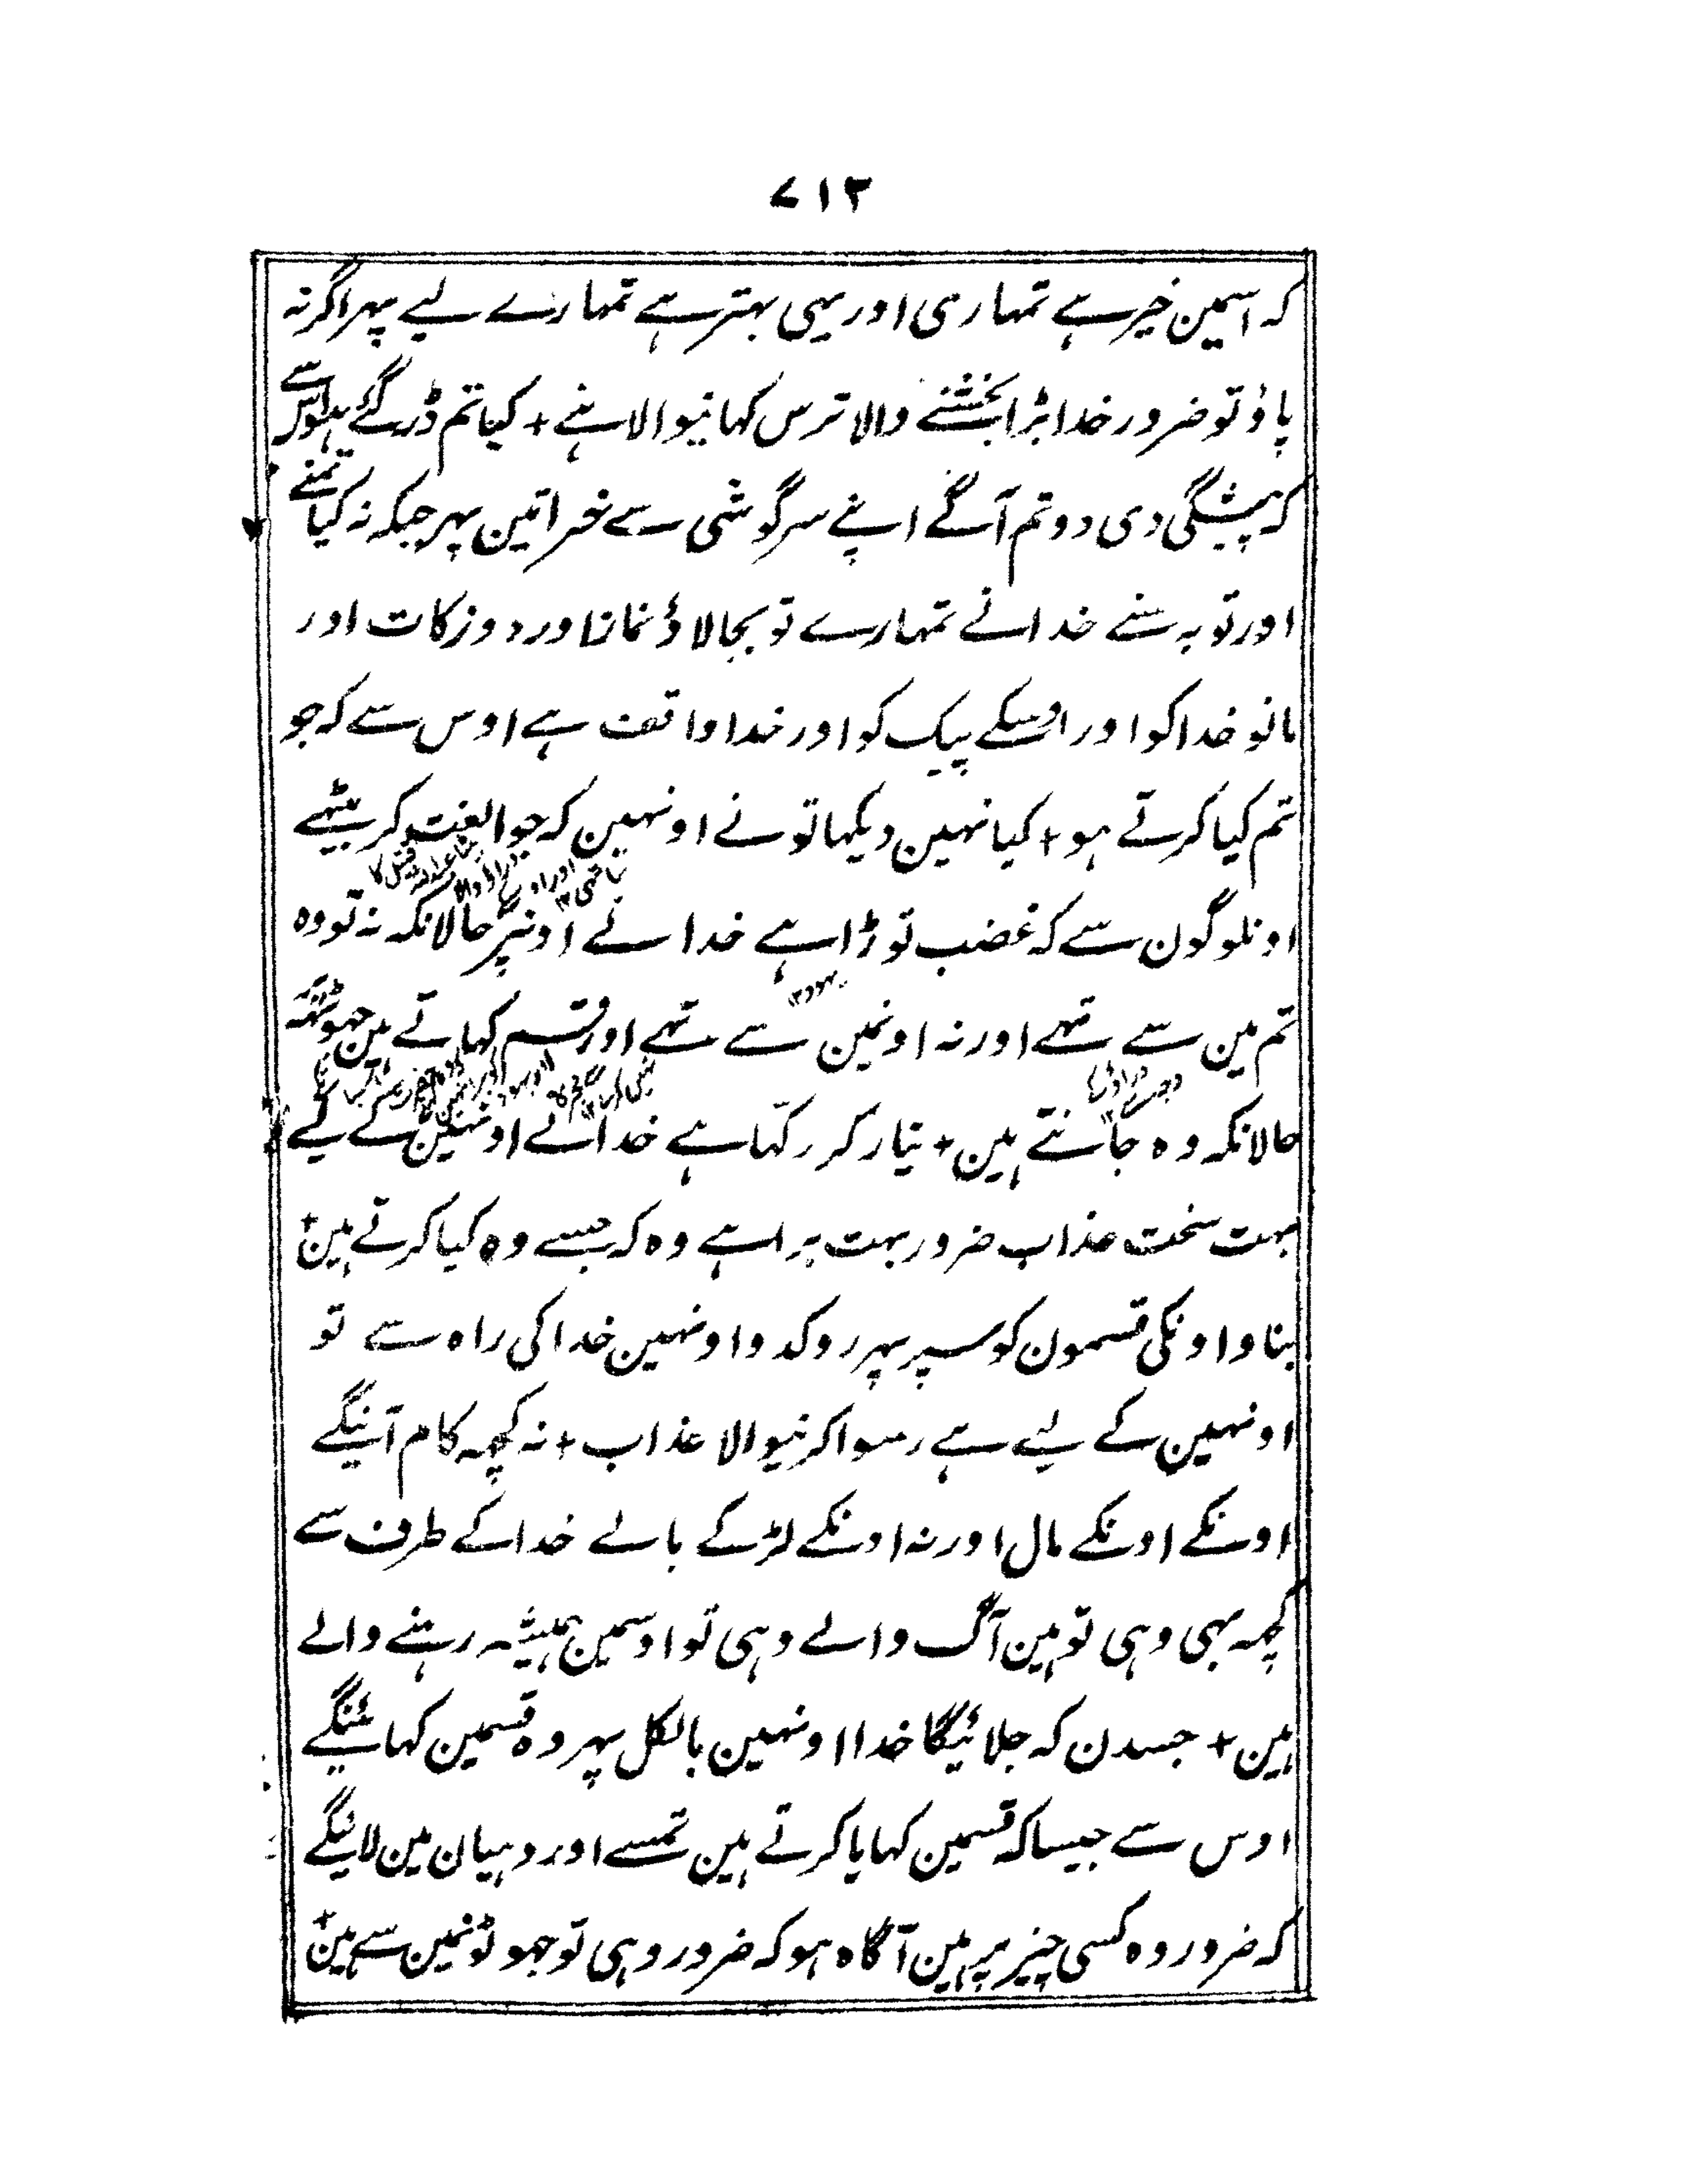 ۷۱۲
کہ اسمین خیر ہے تمہاری اور یہی بہتر ہے تمہارے لیے پہر اگر نہ
پاؤ تو ضرور خدا بڑا بخشنے والا ترس کہانیوالا ہے + کیا تم ڈر گئے ہو اس سے
کہ پیشگی دی دو تم آگے اپنے سرگوشی سے خیراتین پہر جبکہ نہ کیا تمنے
اور توبہ سنے خدانے تمہارے تو بجالاؤ نمازنا ور دو زکات اور
مانو خدا کو اور اوسکے پیک کو اور خدا واقف ہے اوس سے کہ جو
تم کیا کرتے ہو + کیا نہین دیکہا تو نے اونہین کہ جو الفت کر بیٹہے
اونلوگون سے کہ غضب توڑا ہے خدا نے اونپر حالانکہ نہ تو وہ
تم مین سے تہے اور نہ اونمین سے تہے اور قسم کہاتے ہین جہوٹہہ
حالانکہ وہ جانتے ہین + تیار کر رکہا ہے خدا نے اونہین کے لیے
بہت سخت عذاب ضرور بہت برا ہے وہ کہ جسے وہ کیا کرتے ہین +
بنا وا ونکی قسمون کو سپر پہر روکد وا ونہین خدا کی راہ سے تو
اونہین کے لیے ہے رسوا کرنیوالا عذاب + نہ کچہہ کام آینگے
اونکے اونکے مال اور نہ اونکے لڑکے بالے خدا کے طرف سے
کچہہ بہی وہی تو ہین آگ والے وہی تو اوسمین ہمیشہ رہنے والے
ہین + جسدن کہ جلائیگا خدا اونہین بالکل پہر وہ قسمین کہائینگے
اوس سے جیسا کہ قسمین کہایا کرتے ہین تمسے اور دہیان مین لاینگے
کہ ضرور وہ کسی چیز پر ہین آگاہ ہو کہ ضرور وہی تو جہوٹونمین سے ہین +